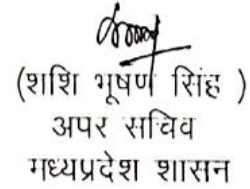 (शशि भूषण सिंह )
अपर सचिव
मध्यप्रदेश शासन